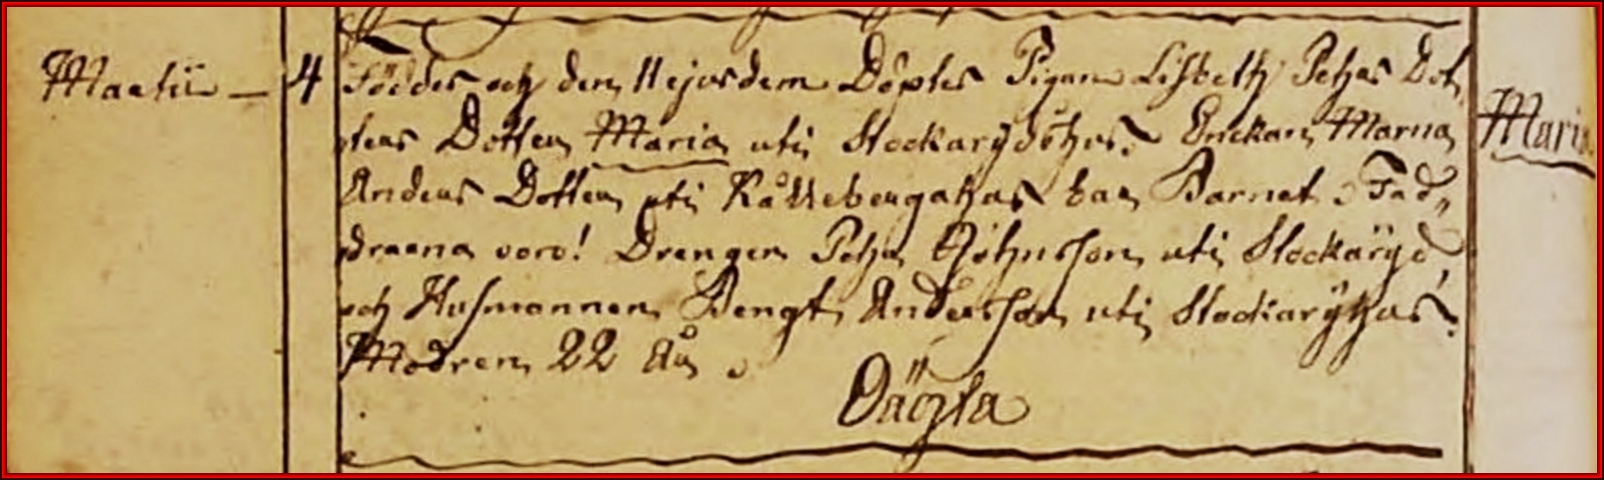 Martii — 4 Föddes och den 11 ejusdem Döptes Pigans Lisbeth Pehrs Dot
ters Dotter Maria uti Stockarydshus. Enckan Marna Maria
Anders Dotter uti Kållebergahus bar Barnet. Fad„
drarna voro! Drengen Pehr Jöhnsson uti Stockaryd,
och Husmannen Bengt Andersson uti Stockaryhus.
Modren 22 År.
Oächta